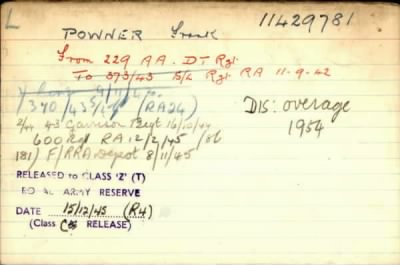 L
11429781
POWNER Frank
From 229 AA. DT Rgt.
To 373/43 S/L Rgt RA 11-9-42
370/43 S/L (RA24)
2/44 43 Garrison Regt 16/10/44
600 Rgt RA 12/2/45 /86
181) F/RRA Depot 8/11/45
DIS: overage
1954
RELEASED to CLASS 'Z' (T)
ROYAL ARMY RESERVE
DATE 15/12/45 (R4)
(Class RELEASE)